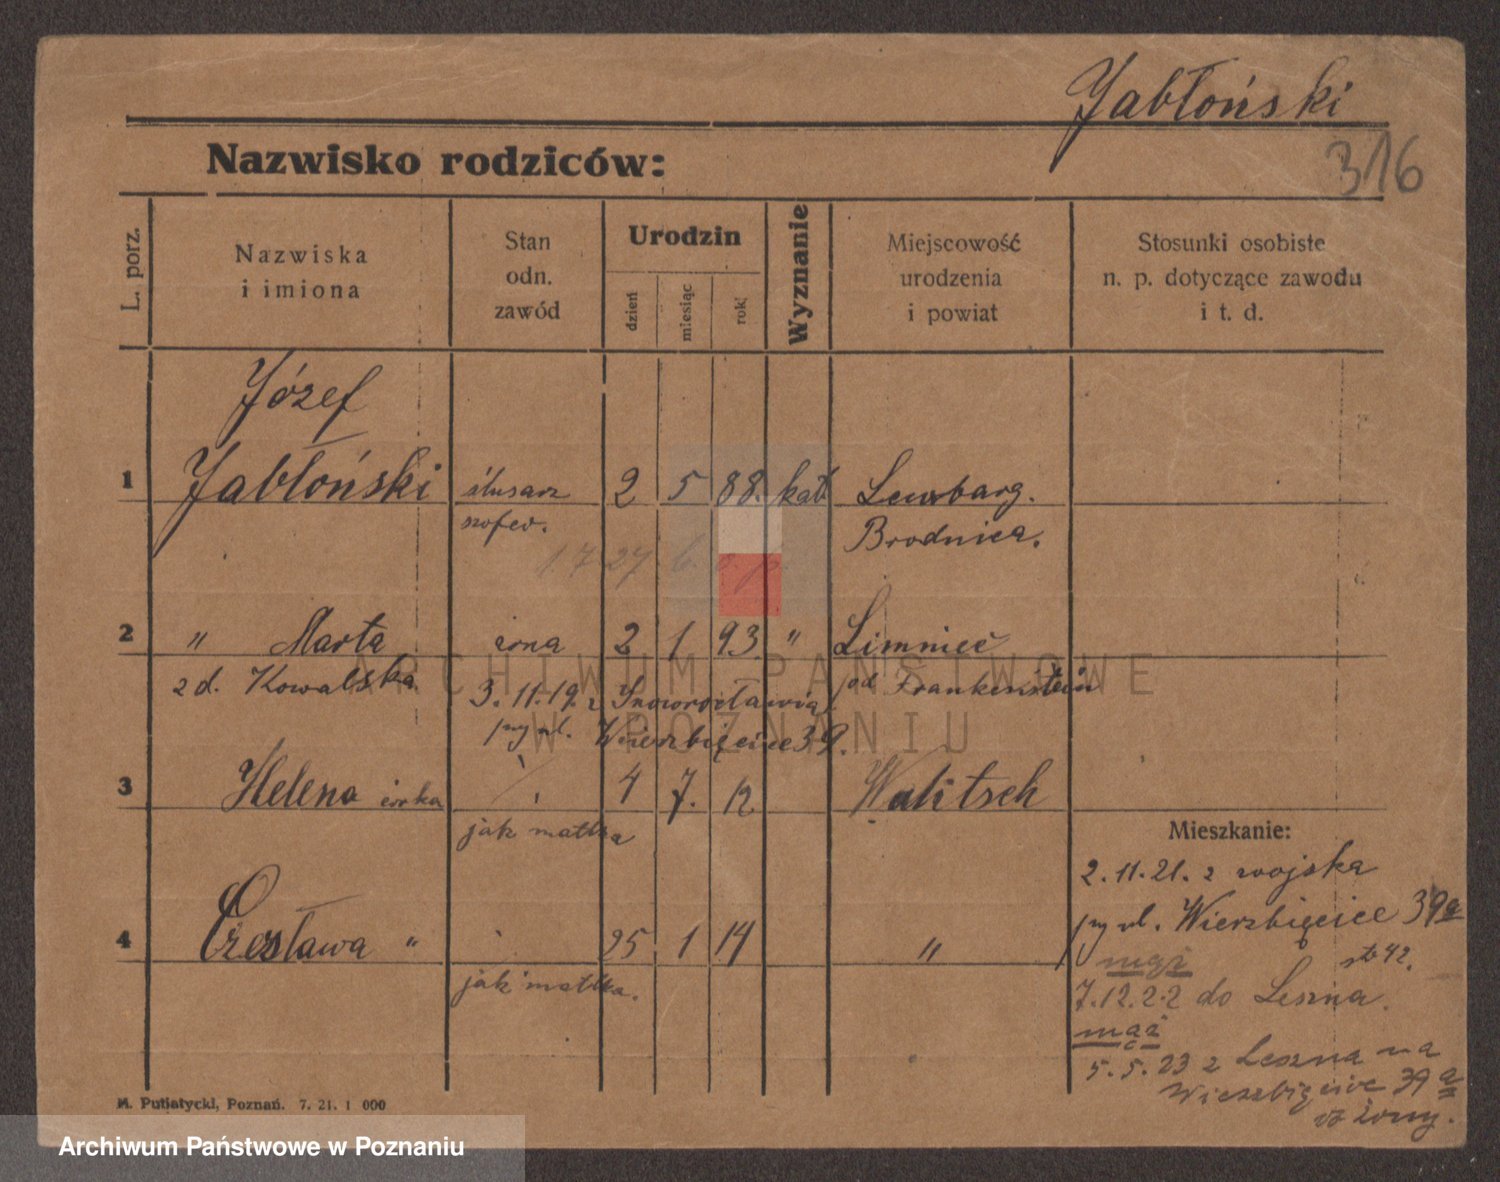 Jabłoński
316
Nazwisko rodziców:
L. porz.
Nazwiska
i imiona
Stan
odn.
zawód
Urodzin
dzień
miesiąc
rok
Wyznanie
Miejscowość
urodzenia
i powiat
Stosunki osobiste
n. p. dotyczące zawodu
i t. d.
Józef
1 Jabłoński ślusarz 2 5 88. kat.
szofer. Brodnica.
1 7 27
2 " Marta żona 2 1 93 " Limnieć
z d. Kowalska 3.11.19. z Inowrocławia pod Frankenstein
przy ul. Wierzbięcice 39.
3 Helena córka 4 7. 12 Walitsch
jak matka
Mieszkanie:
2.11.21. z wojska
przy ul. Wierzbięcice 39a
4 Czesława " 25 1 14 "
jak matka.
mąż
7.12.22 do Leszna.
mąż
5.5.23 z Leszna na
Wierzbięcice 39 a
do żony.
M. Putiatycki, Poznań. 7. 21. 1 000
ARCHIWUM PAŃSTWOWE
W POZNANIU
Archiwum Państwowe w Poznaniu